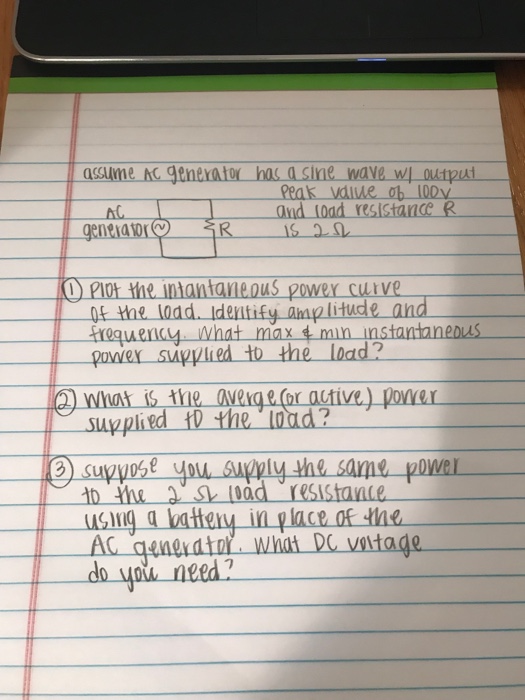 assume AC generator has a sine wave w/ output
Peak value of 100V
and load resistance R
is 2Ω
AC
generator
R
① Plot the intantaneous power curve
of the load. Identify amplitude and
frequency. What max & min instantaneous
power supplied to the load?
② What is the averge (or active) power
supplied to the load?
③ suppose you supply the same power
to the 2 Ω load resistance
using a battery in place of the
AC generator. What DC voltage
do you need?